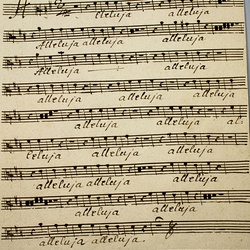 Eleluja alleluja
Alleluja alleluja alleluja
Alleluja alleluja
alleluja alleluja alleluja
alleluja alleluja al:
leluja alleluja alleluja
alleluja alleluja alleluja
alleluja alleluja
alleluja alleluja.